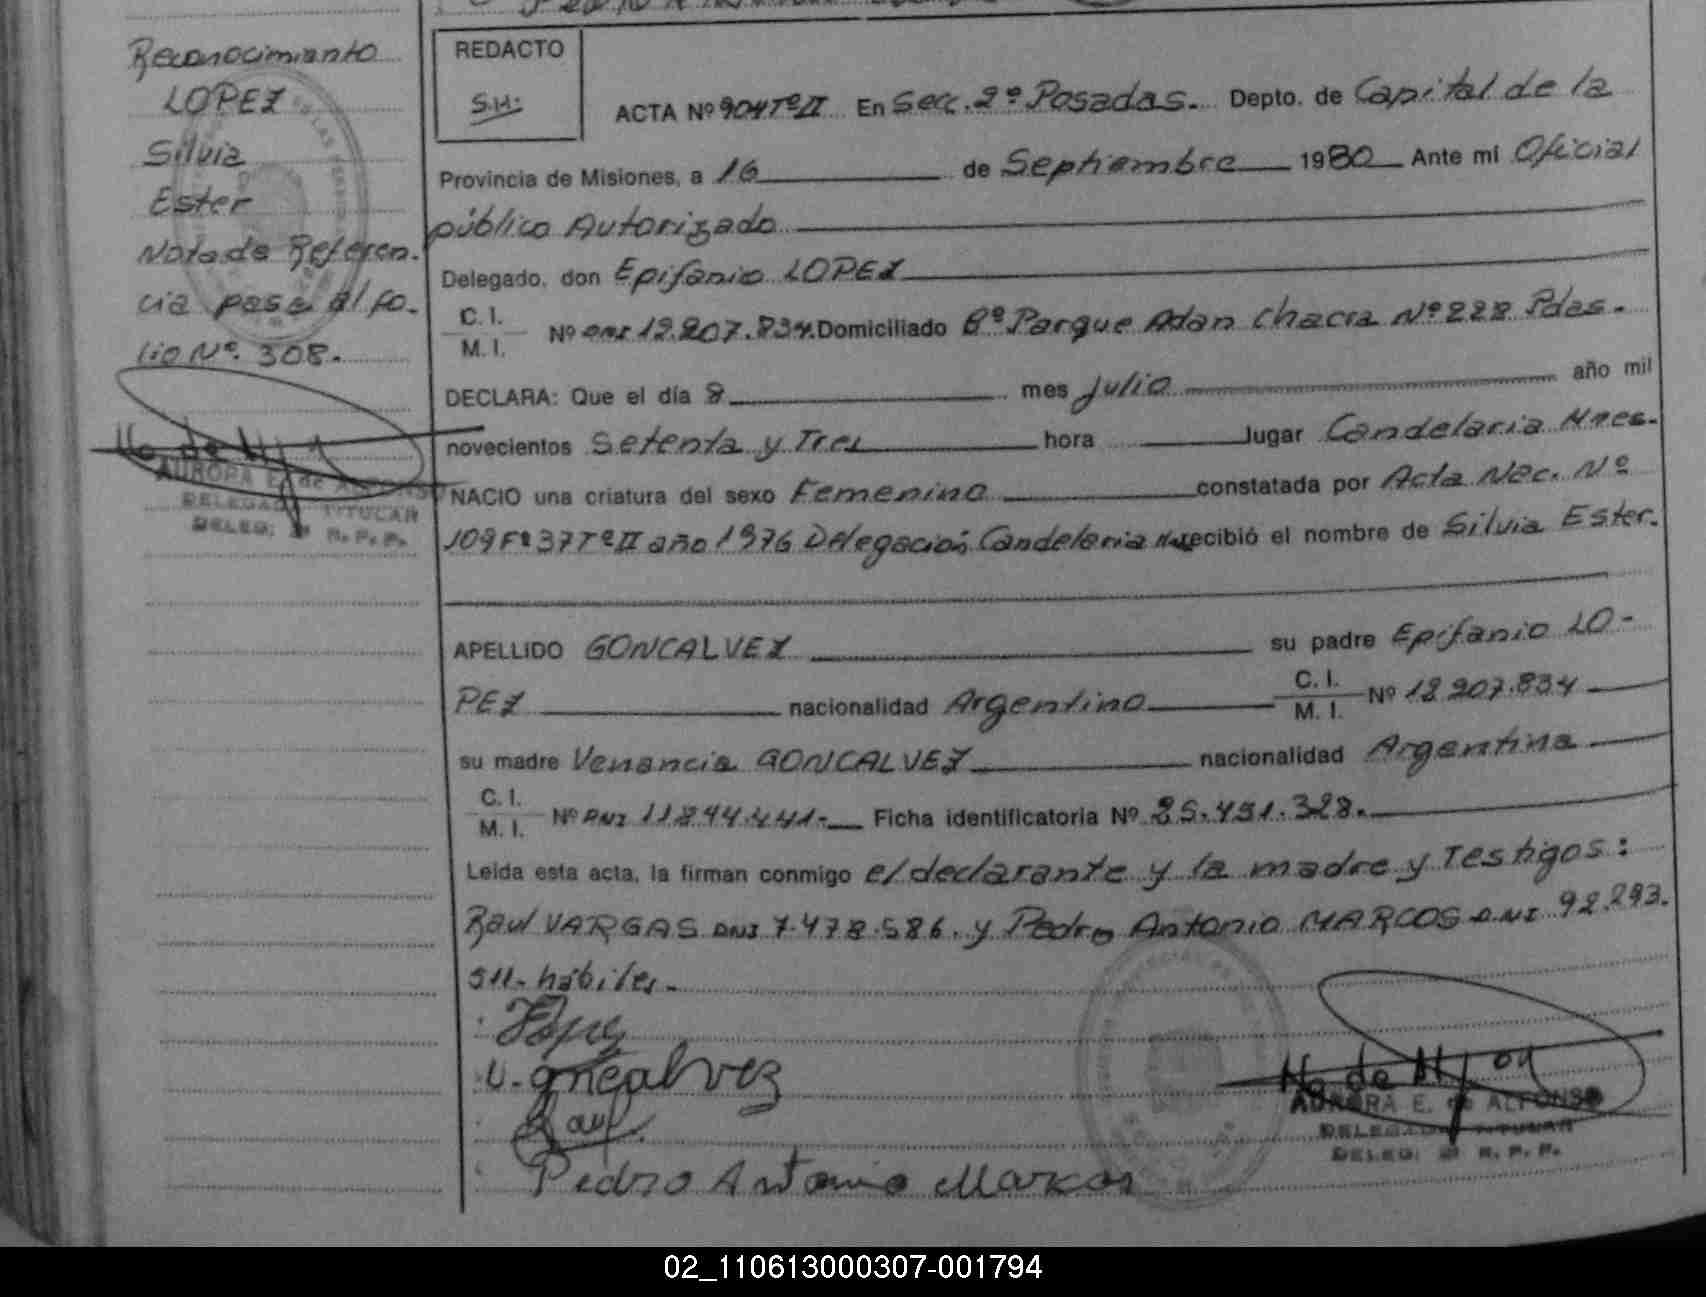 Reconocimiento
LOPEZ
Silvia
Ester
Nota de Referen.
cia pasa al fo.
lio Nº. 308.
AURORA E. de ALFONSO
DELEGADA TITULAR
DELEG: 2ª R.P.P.
REDACTO
S.H:
ACTA Nº 904 Tº II En Secc. 2º Posadas. Depto. de Capital de la
Provincia de Misiones, a 16 de Septiembre 1980 Ante mi Oficial
público Autorizado
Delegado, don Epifanio LOPEZ
C. I.
M. I. Nº DNI 12.207.834. Domiciliado Bº Parque Adan Chacra Nº 228 Pdas.
DECLARA: Que el día 8 mes Julio año mil
novecientos Setenta y Tres hora lugar Candelaria Mnes.
NACIO una criatura del sexo Femenino constatada por Acta Nac. Nº
109 Fº 37 Tº II año 1976 Delegación Candelaria recibió el nombre de Silvia Ester.
APELLIDO GONCALVEZ su padre Epifanio LO-
PEZ nacionalidad Argentino C. I.
M. I. Nº 12.207.834
su madre Venancia GONCALVEZ nacionalidad Argentina
C. I.
M. I. Nº DNI 11.844.441.- Ficha identificatoria Nº 25.451.328.
Leida esta acta, la firman conmigo el declarante y la madre y Testigos:
Raul VARGAS DNI 7.478.586. y Pedro Antonio MARCOS DNI 92.293.
511- hábiles.
V. goncalvez
Raul
Pedro Antonio Marcos
AURORA E. de ALFONSO
DELEGADA TITULAR
DELEG: 2ª R.P.P.
02_110613000307-001794